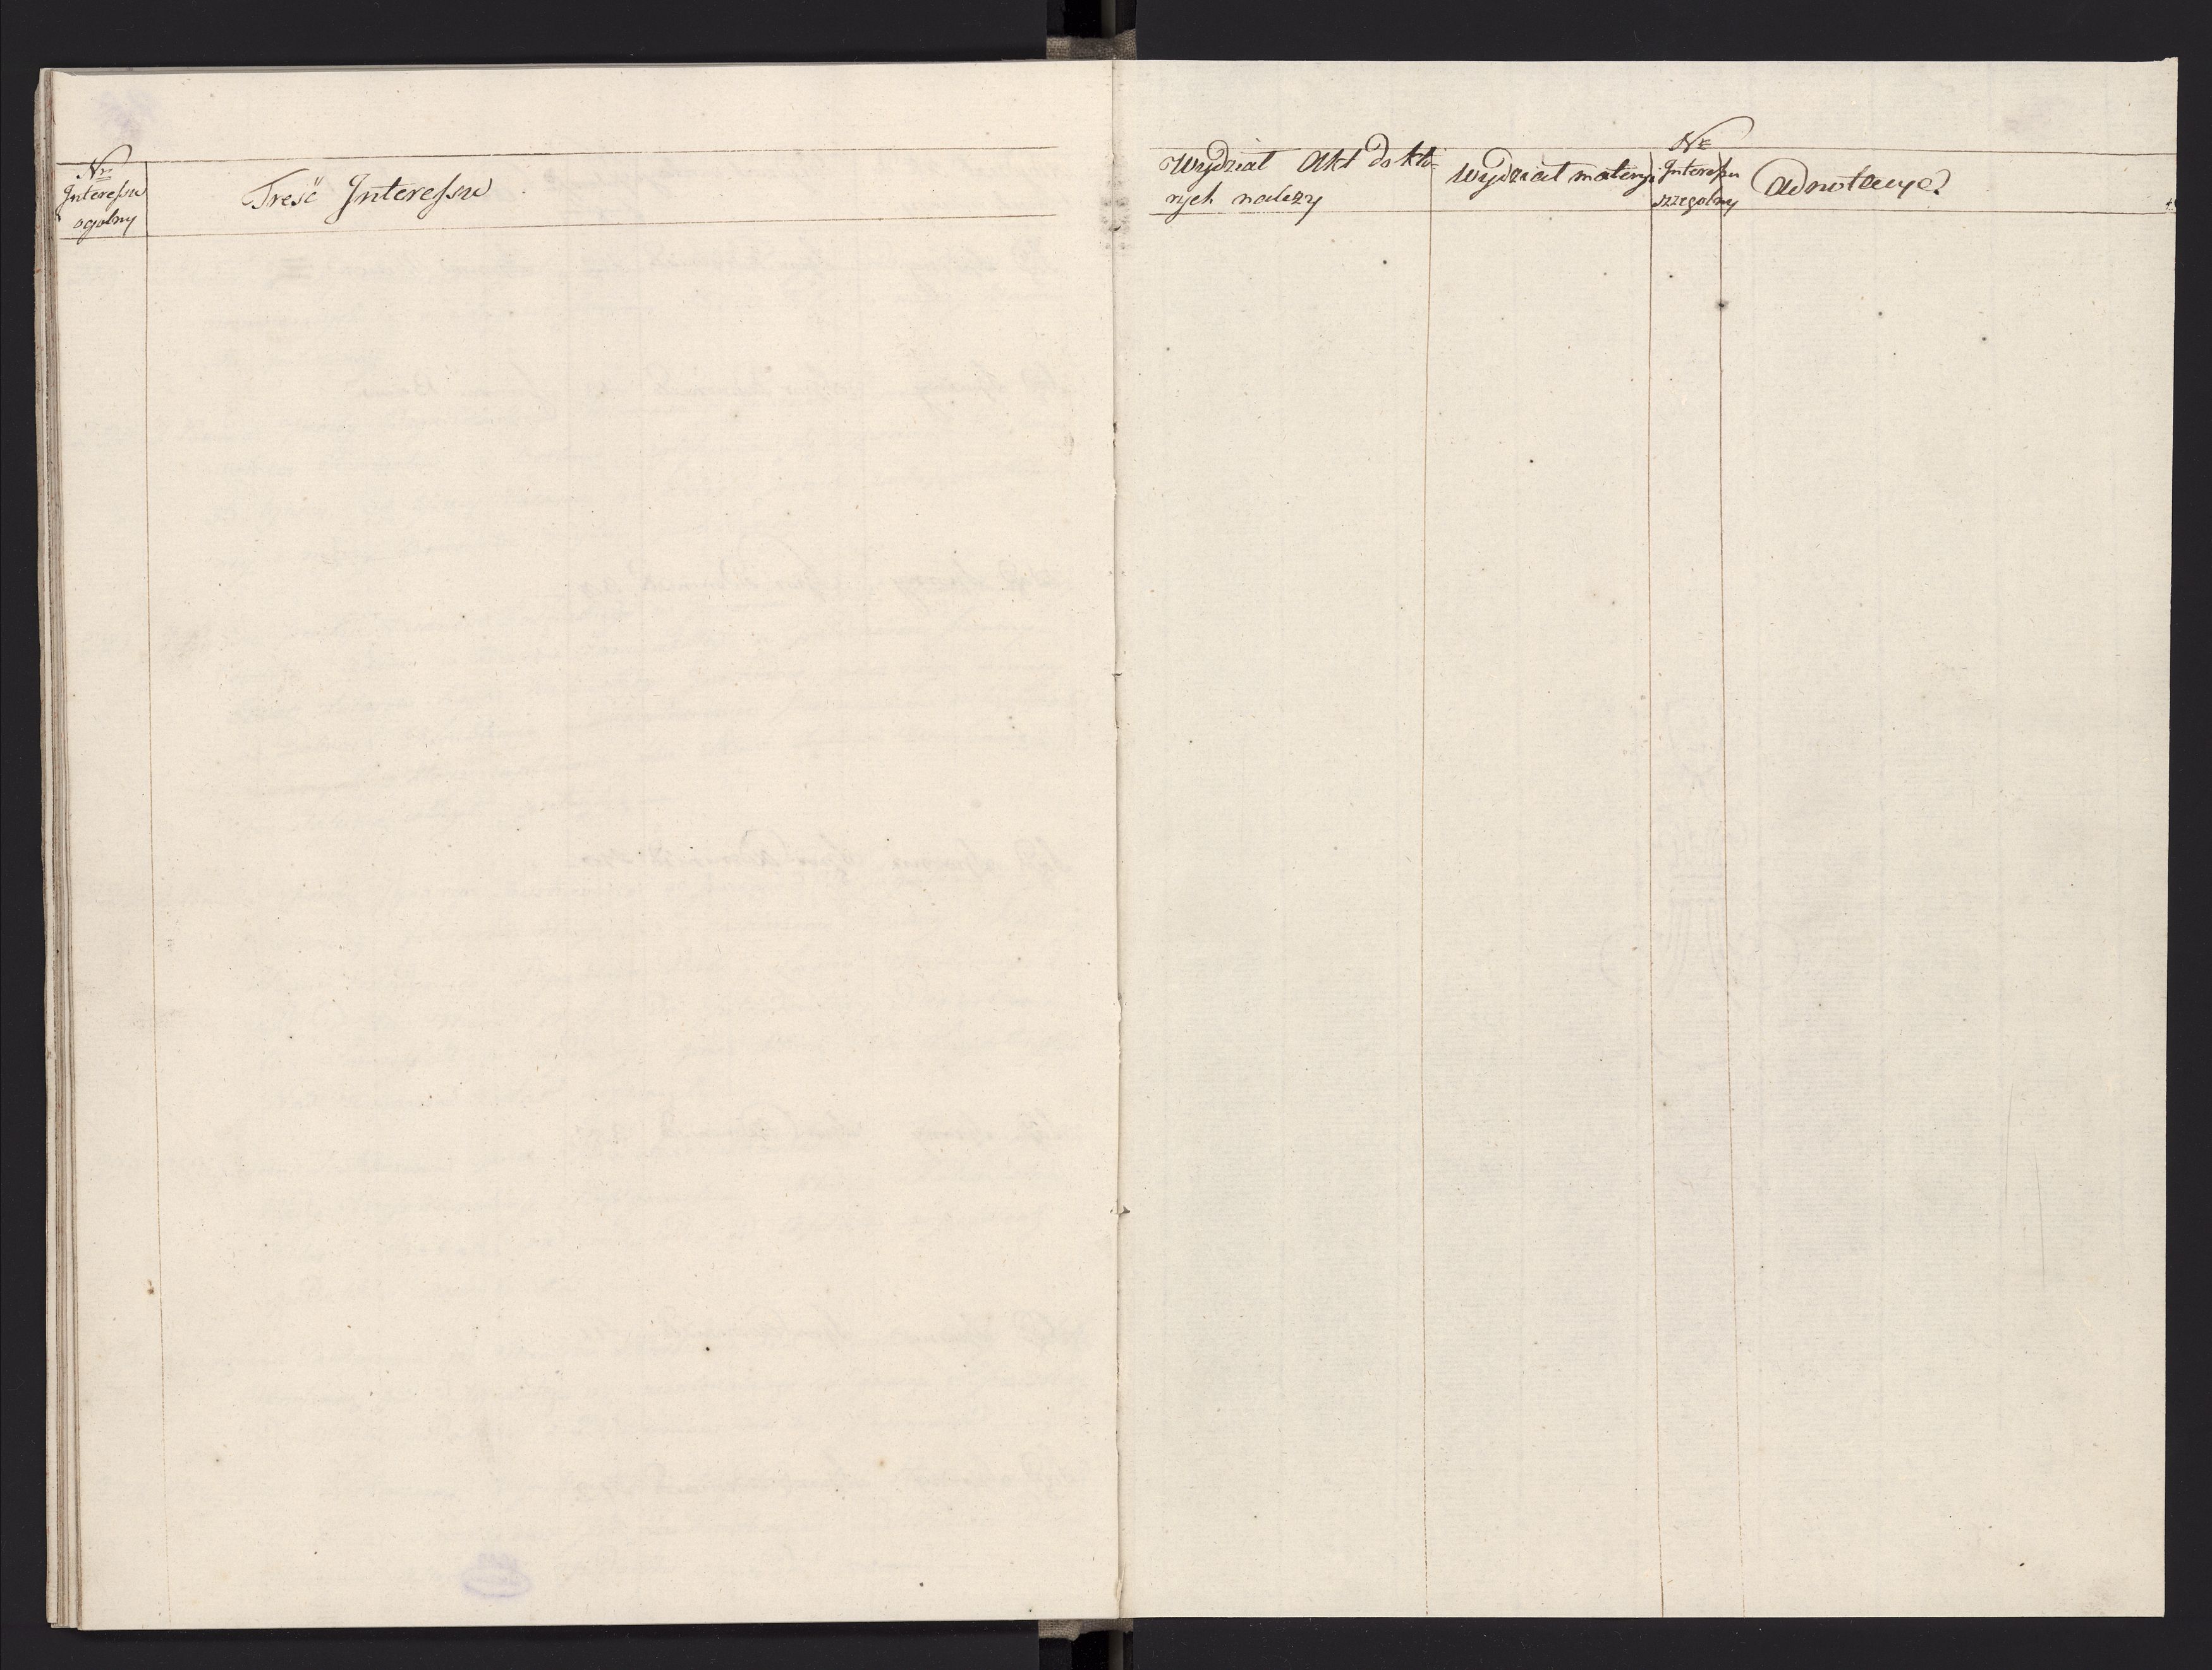 Nr
Interessu
ogolny
Treść Interessu
Wydział Akt do któ-
rych należy
Wydział materyi
Nr
Interessu
szzegolny
Adnotacye